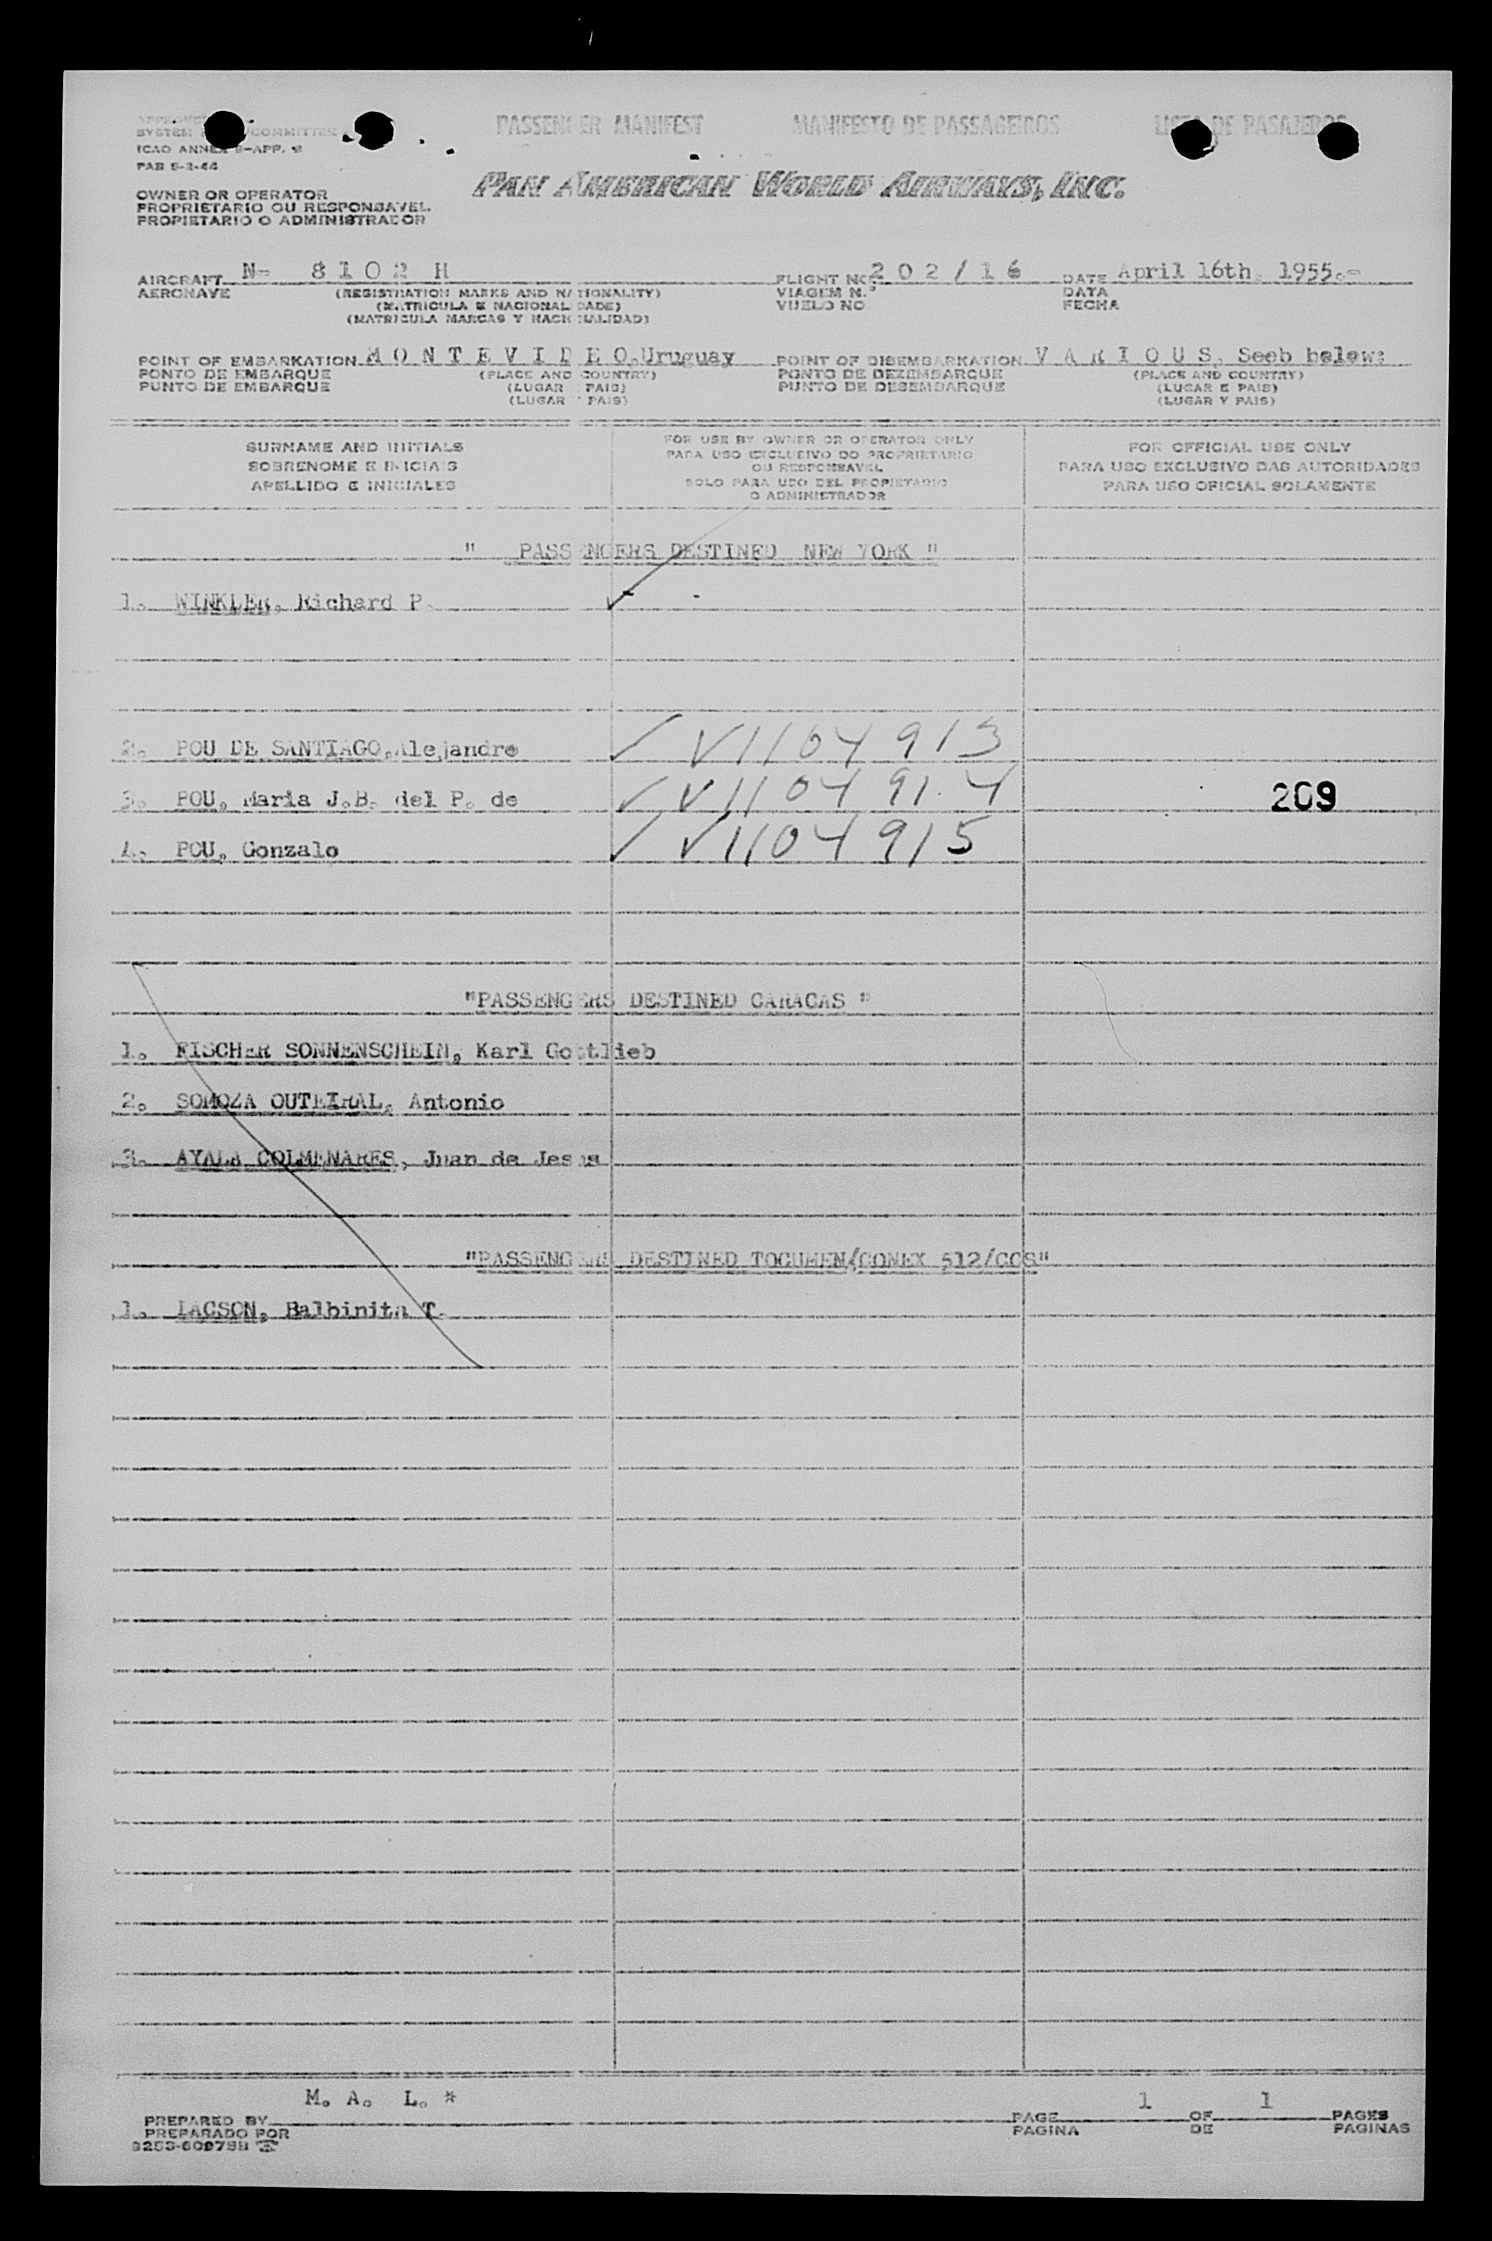 PASSENGER MANIFEST MANIFESTO DE PASSAGEIROS LISTA DE PASAJEROS
SYSTEM COMMITTEE
ICAO ANNEX 9-APP.
PAB 5-2-44
PAN AMERICAN WORLD AIRWAYS, INC.
OWNER OR OPERATOR
PROPRIETARIO OU RESPONSAVEL
PROPIETARIO O ADMINISTRADOR
AIRCRAFT N- 8 1 0 2 H FLIGHT NO. 2 0 2 / 1 6 DATE April 16th. 1955.-
AERONAVE (REGISTRATION MARKS AND NATIONALITY) VIAGEM N.º DATA
(MATRICULA E NACIONALIDADE) VUELO NO FECHA
(MATRICULA MARCAS Y NACIONALIDAD)
POINT OF EMBARKATION M O N T E V I D E O.Uruguay POINT OF DISEMBARKATION V A R I O U S, Seeb below:
PONTO DE EMBARQUE (PLACE AND COUNTRY) PONTO DE DEZEMBARQUE (PLACE AND COUNTRY)
PUNTO DE EMBARQUE (LUGAR PAIS) PUNTO DE DESEMBARQUE (LUGAR E PAIS)
(LUGAR Y PAIS) (LUGAR Y PAIS)
SURNAME AND INITIALS FOR USE BY OWNER OR OPERATOR ONLY FOR OFFICIAL USE ONLY
SOBRENOME E INICIAIS PARA USO EXCLUSIVO DO PROPRIETARIO PARA USO EXCLUSIVO DAS AUTORIDADES
OU RESPONSAVEL
APELLIDO E INICIALES SOLO PARA USO DEL PROPIETARIO PARA USO OFICIAL SOLAMENTE
O ADMINISTRADOR
" PASSENGERS DESTINED NEW YORK "
1. WINKLER, Richard P.
2. POU DE SANTIAGO,Alejandro ✓ V1104913
3. POU, Maria J.B. del P. de ✓ V1104914 209
4.- POU, Gonzalo ✓ V1104915
"PASSENGERS DESTINED CARACAS "
1. FISCHER SONNENSCHEIN, Karl Gottlieb
2. SOMOZA OUTEIRAL, Antonio
3. AYALA COLMENARES, Juan de Jesus
"PASSENGERS DESTINED TOCUMEN/CONEX 512/CCS"
1. LACSON, Balbinita T.
M. A. L. *
PREPARED BY PAGE 1 OF 1 PAGES
PREPARADO POR PAGINA DE PAGINAS